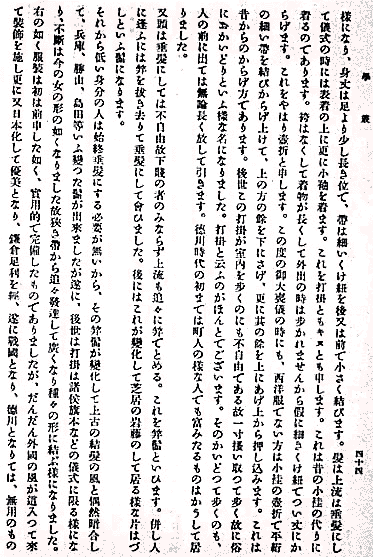 學叢
四十四
樣になり、身丈は足より少し長き位で、帶は細いくけ紐を後又は前で小さく結びます。髮は上流は垂髮にし
て儀式の時には表着の上に更に小袖を着ます。これを打掛ともキヌとも申します。これは昔の小袿の代りに
着るのであります。袴はなくして着物が長くして外出の時は步かれませんから假に細さくけ紐でつい丈にか
らげます。これをやはり壺折と申します。この度の御大喪儀の時にも、西洋服でない方は小袿の壺折で平絎
の細い帶を結びからげ上けて、上の方の餘を下にさげ、更に其の餘を上にあげ上から押し込みます。これは
昔からのからげ方であります。後世この打掛が室內を步くのにも不自由である故一寸搔い取つて步く故に俗
にかいどりといふ樣な名になりました。打掛と云ふのがほんとでございます。そのかいどつて步くのも、
人の前に出ては無論長く放して引きます。德川時代の初までは町人の樣な人でも富みたるものはかうして居
りました。
又頭は垂髮にしては不自由故下賤の者のみならず上流も追々に笄でとめる。これを笄髷といひます。併し人
に逢ふには笄を拔き去りて垂髮にして會ひました。後にはこれが變化して芝居の岩藤のして居る樣な片はづ
しといふ髷になります。
それから低い身分の人は始終垂髮にする必要が無いから、その笄髷が變化して上古の結髮の風と偶然暗合し
て、兵庫、勝山、島田等いふ變つた髷が出來ましたが遂に、後世は打掛は諸侯旗本などの儀式に限る樣にな
り、不斷は今の女の形の如くなりました故狹き帶から追々發達して廣くなり種々の形に結ぶ樣になりました。
右の如く服裝は初は前申した如く、實用的で完備したものでありましたが、だんだん外國の風が這入つて來
て裝飾を施し更に又日本化して優美となり、鎌倉足利を經、遂に戰國となり、德川となりては、無用のもの